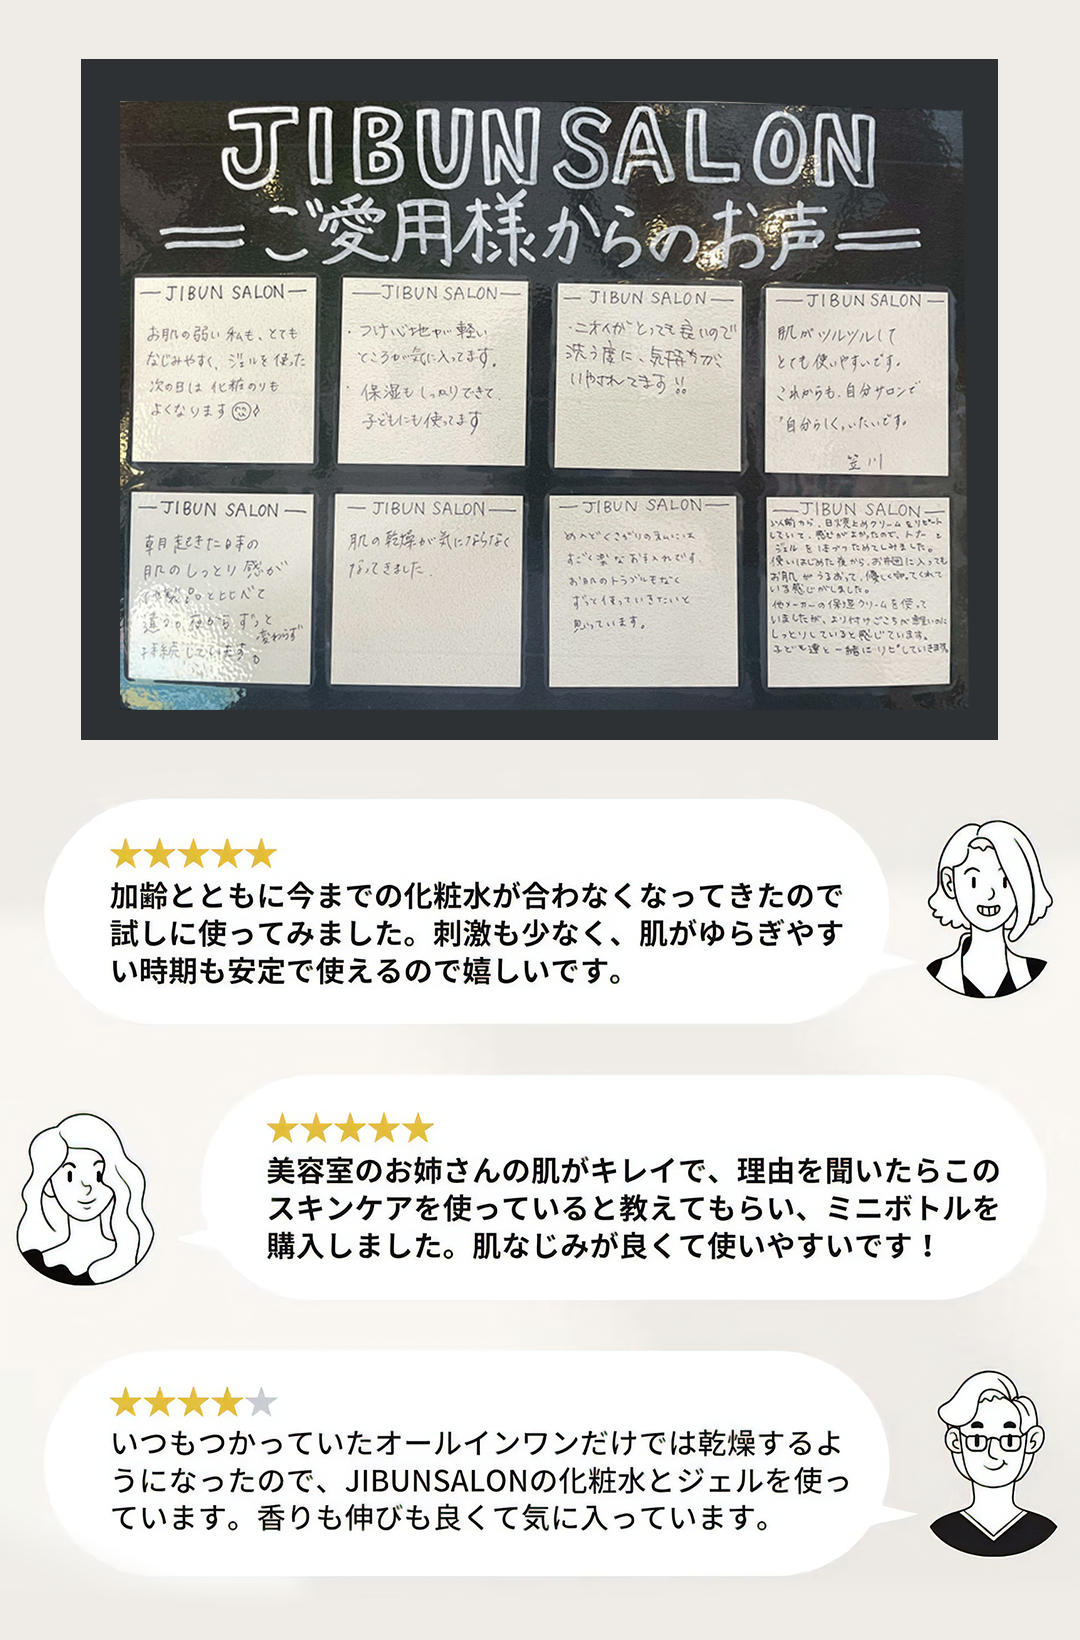 JIBUN SALON
ご愛用様からのお声
JIBUN SALON
お肌の弱い私も、とても
なじみやすく、ジェルを使った
次の日は化粧のりも
よくなります
JIBUN SALON
・つけ心地が軽い
ところが気に入ってます。
・保湿もしっかりできて、
子どもにも使ってます
JIBUN SALON
・ニオイがとっても良いので
洗う度に、気持ちが、
いやされてます!!
JIBUN SALON
肌がツルツルして
とても使いやすいです。
これからも、自分サロンで
"自分らしく"いたいです。
笠川
JIBUN SALON
朝起きた時の
肌のしっとり感が
他製品と比べて
違う。夜からずっと
変わらず
持続しています。
JIBUN SALON
肌の乾燥が気にならなく
なってきました。
JIBUN SALON
めんどくさがりの私には
すごく楽なお手入れです。
お肌のトラブルもなく
ずっと使っていきたいと
思っています。
JIBUN SALON
日焼止めクリームをリピート
していて、感じがよかったので、トナーと
ジェルを1本づつためしてみました。
使いはじめた夜から、お布団に入っても
お肌がうるおって、優しく
いる感じがしました。
他メーカーの保湿クリームを使って
いましたが、より付けごこちが軽いのに
しっとりしていると感じています。
子ども達と一緒にリピしていきます。
加齢とともに今までの化粧水が合わなくなってきたので
試しに使ってみました。刺激も少なく、肌がゆらぎやす
い時期も安定で使えるので嬉しいです。
美容室のお姉さんの肌がキレイで、理由を聞いたらこの
スキンケアを使っていると教えてもらい、ミニボトルを
購入しました。肌なじみが良くて使いやすいです！
いつもつかっていたオールインワンだけでは乾燥するよ
うになったので、JIBUNSALONの化粧水とジェルを使っ
ています。香りも伸びも良くて気に入っています。